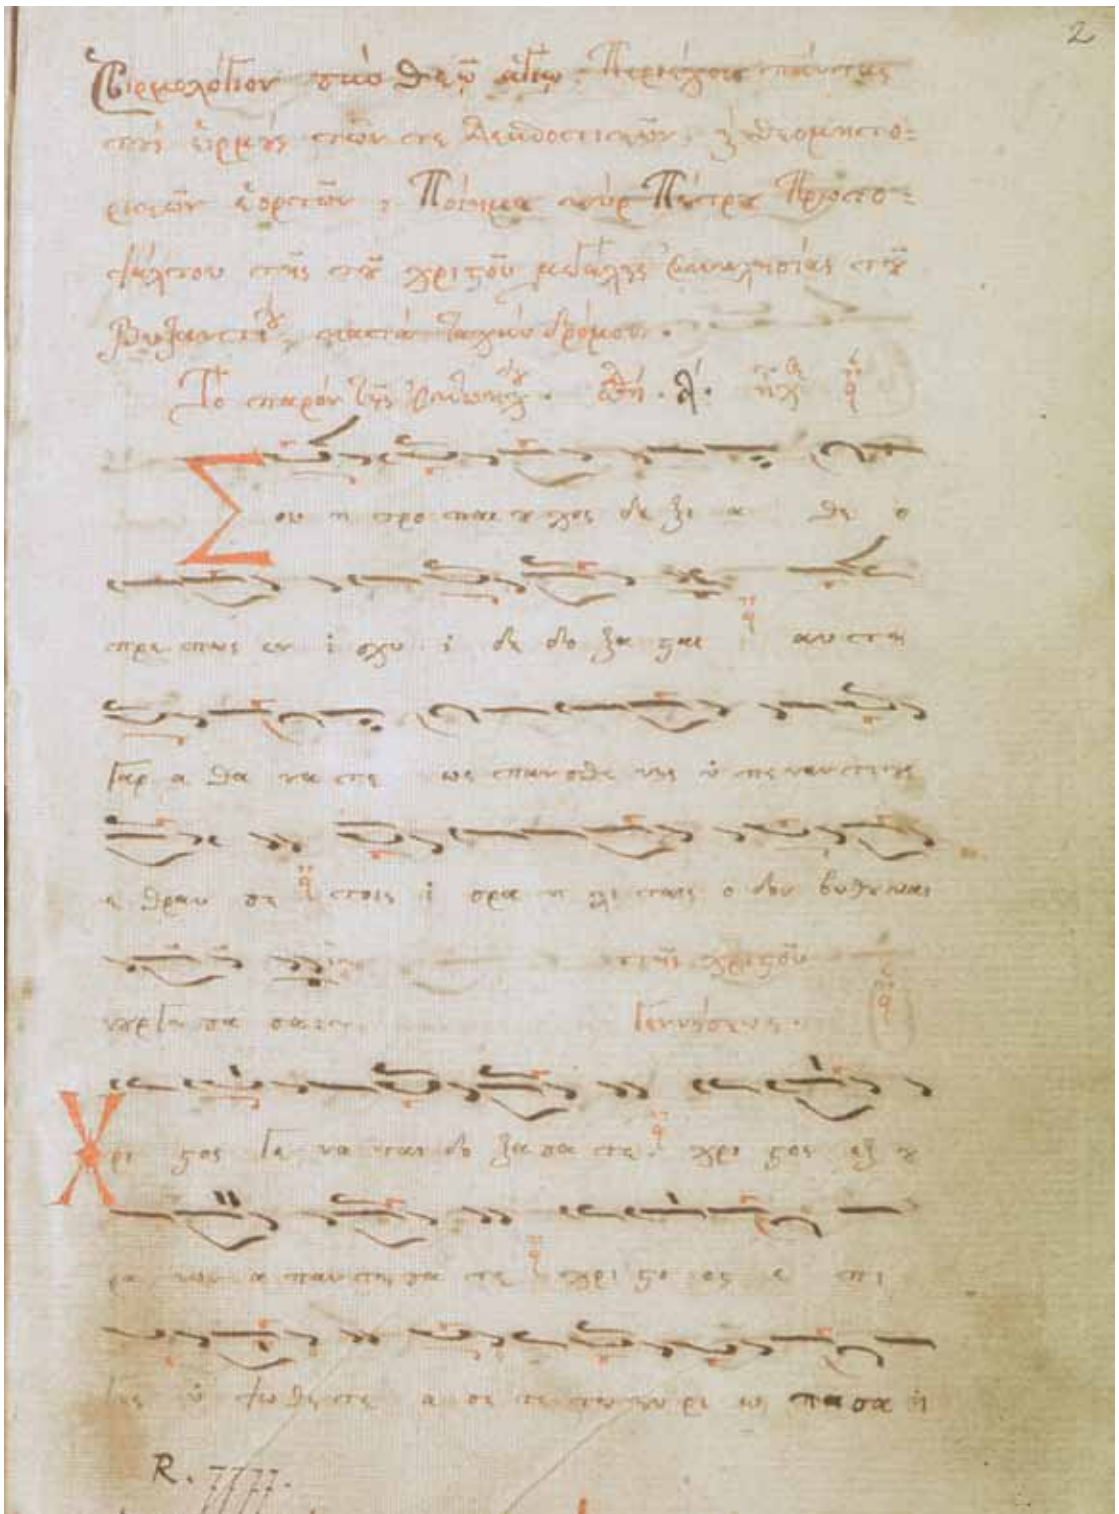 2
Εἱρμολόγιον σὺν θεῷ ἁγίῳ, Περιέχον πάντας
τοὺς εἱρμοὺς τῶν τε Δεσποτικῶν, καὶ θεομητο=
ρικῶν ἑορτῶν, Ποίημα κὺρ Πέτρου Πρωτο=
ψάλτου τῆς τοῦ χριστοῦ μεγάλης ἐκκλησίας τοῦ
Βυζαντίου, κατὰ ταχὺν δρόμον.
Τὸ παρὸν τῆς ὠδὴ. α'. ἦχ
Σου η προ παι ου χος δε ξι α θε ο
πρε πως εν ι σχυ ι δε δο ξα σται αυ τη
γαρ α θα να τε ως παν σθε νης υ πε ναν τι ους
ε θραυ σε τοις ι σρα η λι ταις ο δον βυθου και
νουργη σα σα
τῆς χριστοῦ
Γεννήσεως.
Χρι στος γε να ται δο ξα σα τε χρι στος εξ ου
ρα νων α παν τη σα τε χρι στο ος ε πι
γης υ ψω θη τε α σα τε τω κυ ρι ω πα σα η
R.